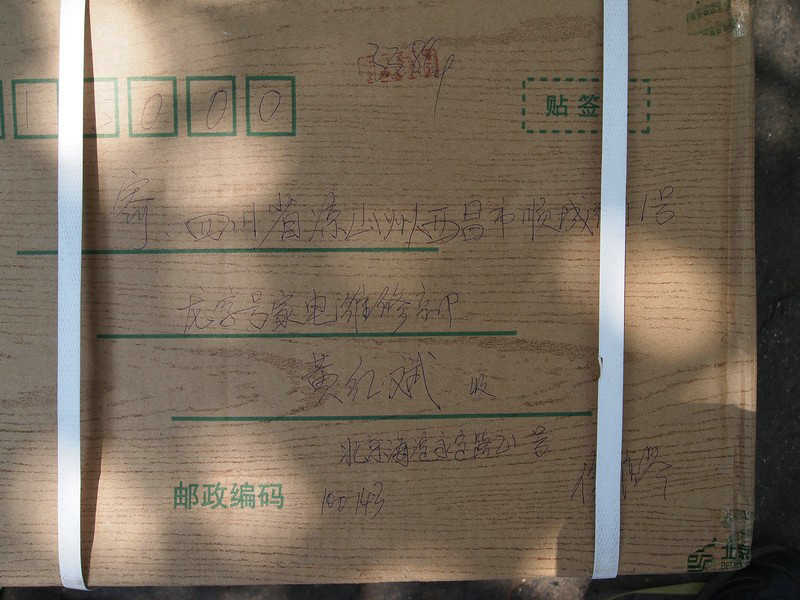 000
贴签
寄:四川省凉山州西昌市顺城 1号
龙字号家电维修部
黄红斌 收
北京海淀永定路21号
邮政编码 100143
北京